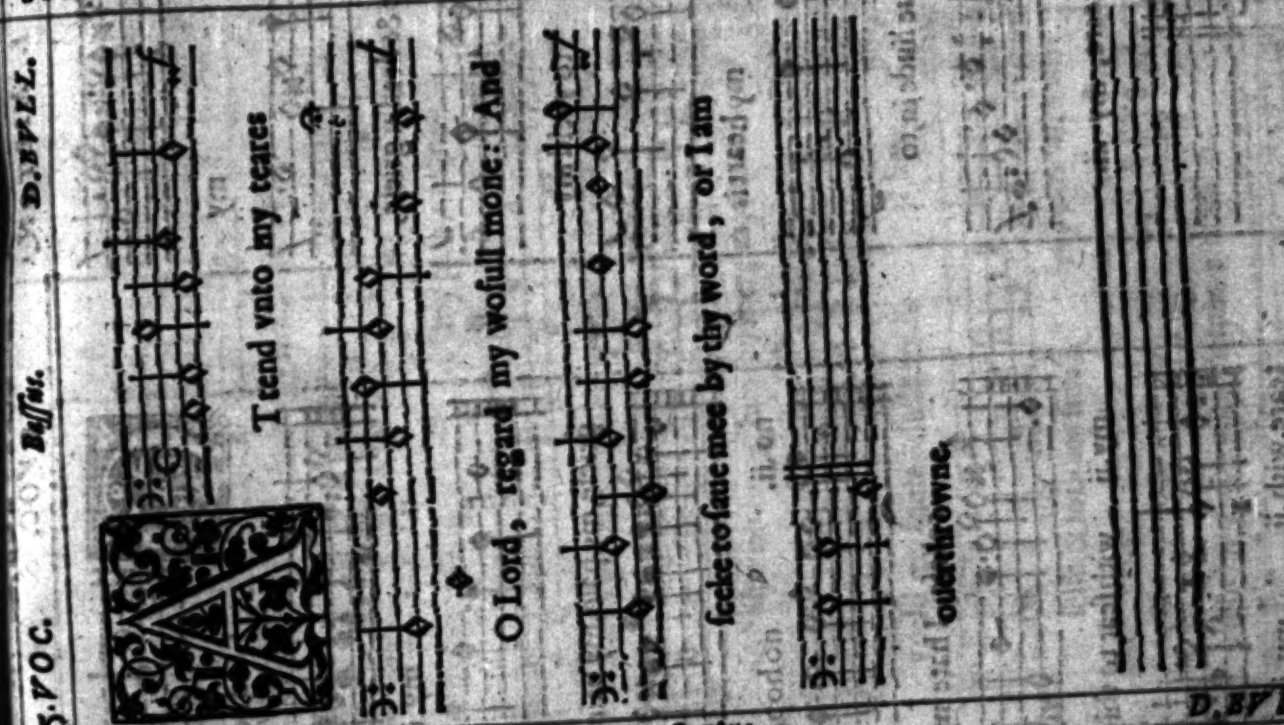 5. VOC. Bassus. D. BVLL.
A Ttend vnto my teares
O Lord, regard my wofull mone: And
seeke to saue mee by thy word, or I am
ouerthrowne.